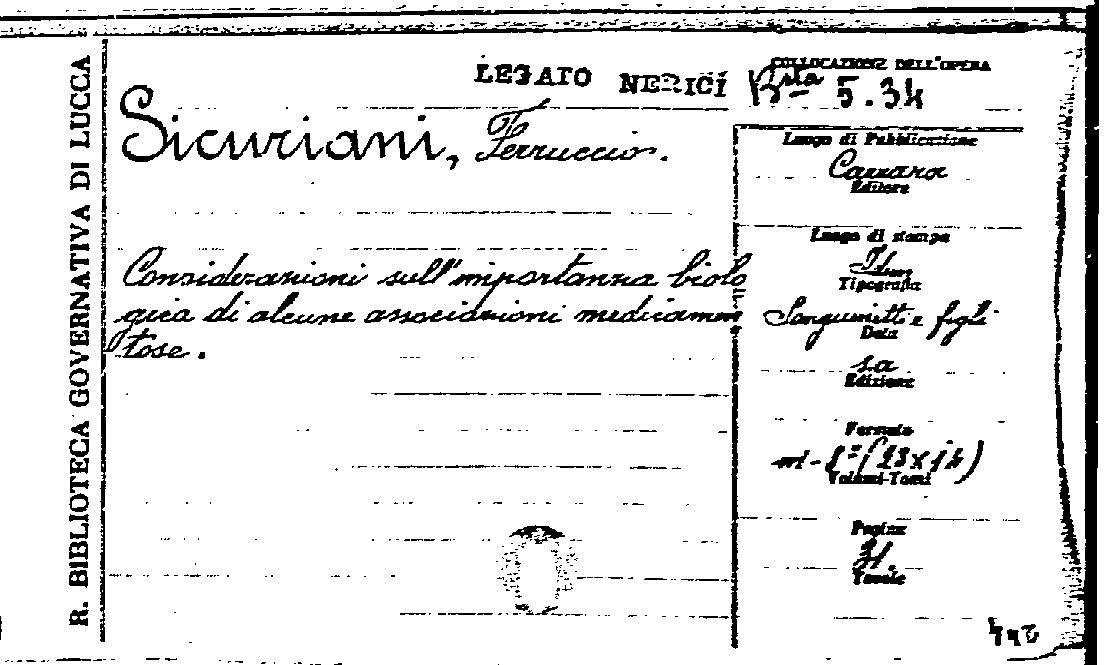 R. BIBLIOTECA GOVERNATIVA DI LUCCA
LEGATO NERICI
COLLOCAZIONE DELL'OPERA
Bsta 5.34
Sicuriani, Ferruccio.
Considerazioni sull'importanza biolo
gica di alcune associazioni medicamen
tose.
Luogo di Pubblicazione
Carrara
Editore
Luogo di stampa
Idem
Tipografia
Sanguinetti e figli
Data
s.a
Edizione
Formato
in-8º (23 x 14)
Volumi-Tomi
Pagine
31.
Tavole